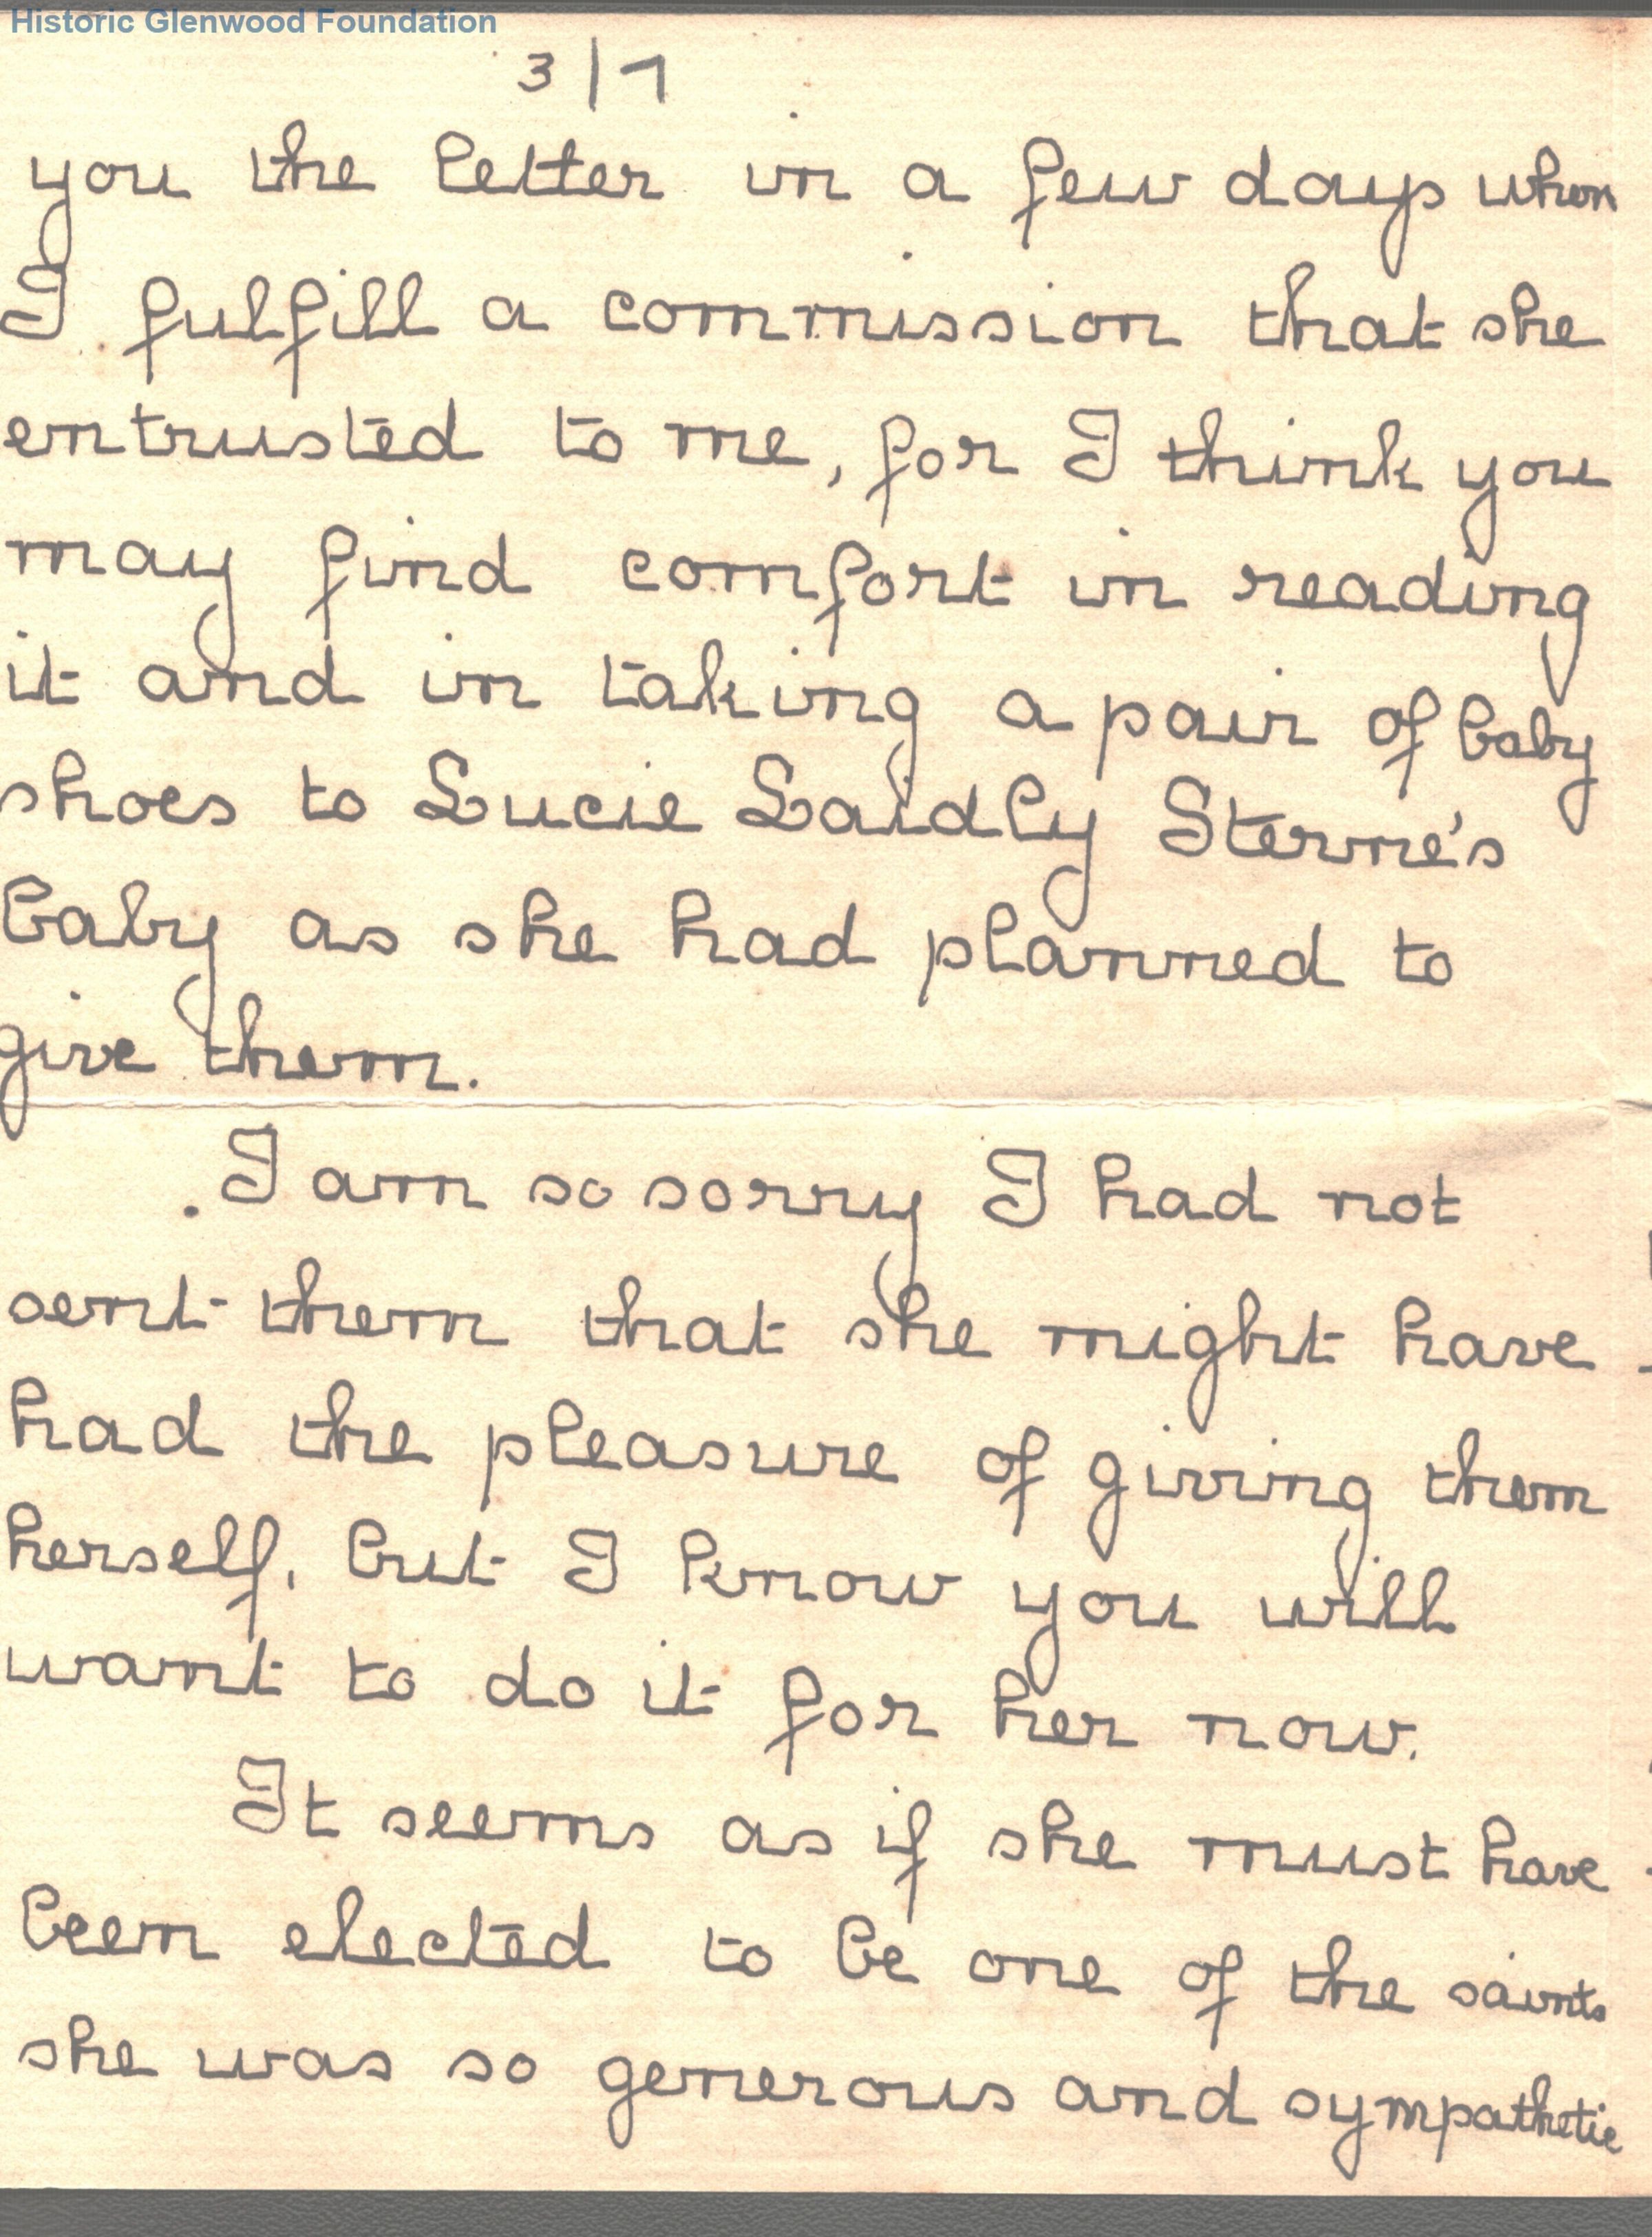 Historic Glenwood Foundation
3/7
you the letter in a few days when
I fulfill a commission that she
entrusted to me, for I think you
may find comfort in reading
it and in taking a pair of baby
shoes to Lucie Laidly Sterne's
baby as she had planned to
give them.
I am so sorry I had not
sent them that she might have
had the pleasure of giving them
herself, but I know you will
want to do it for her now.
It seems as if she must have
been elected to be one of the saints
she was so generous and sympathetic